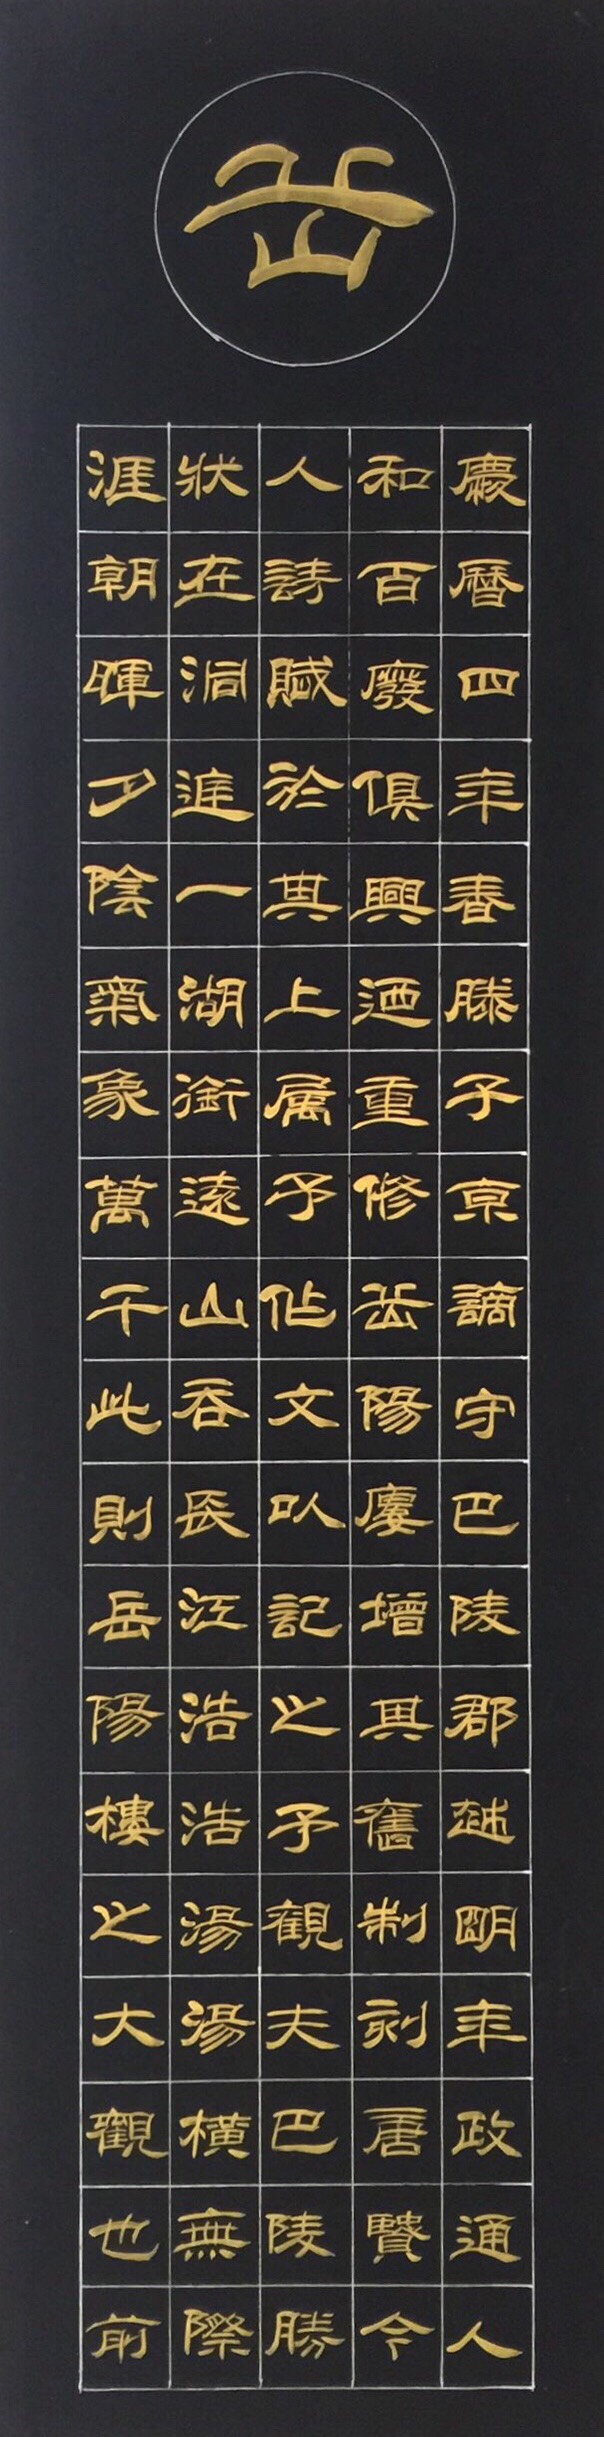 岳
慶曆四年春滕子京謫守巴陵郡越明年政通人
和百廢俱興迺重修岳陽樓增其舊制刻唐賢今
人詩賦於其上属予作文以記之予觀夫巴陵勝
狀在洞庭一湖銜遠山吞長江浩浩湯湯橫無際
涯朝暉夕陰氣象萬千此則岳陽樓之大觀也前